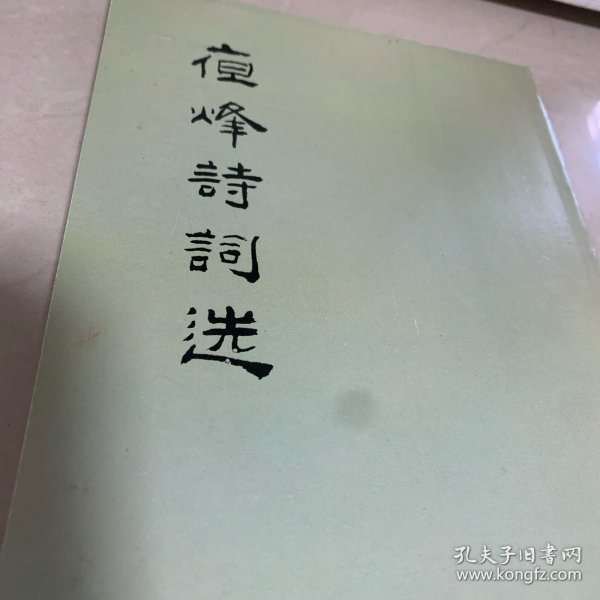 值烽詩詞选
孔夫子旧書网
www.kongfz.com